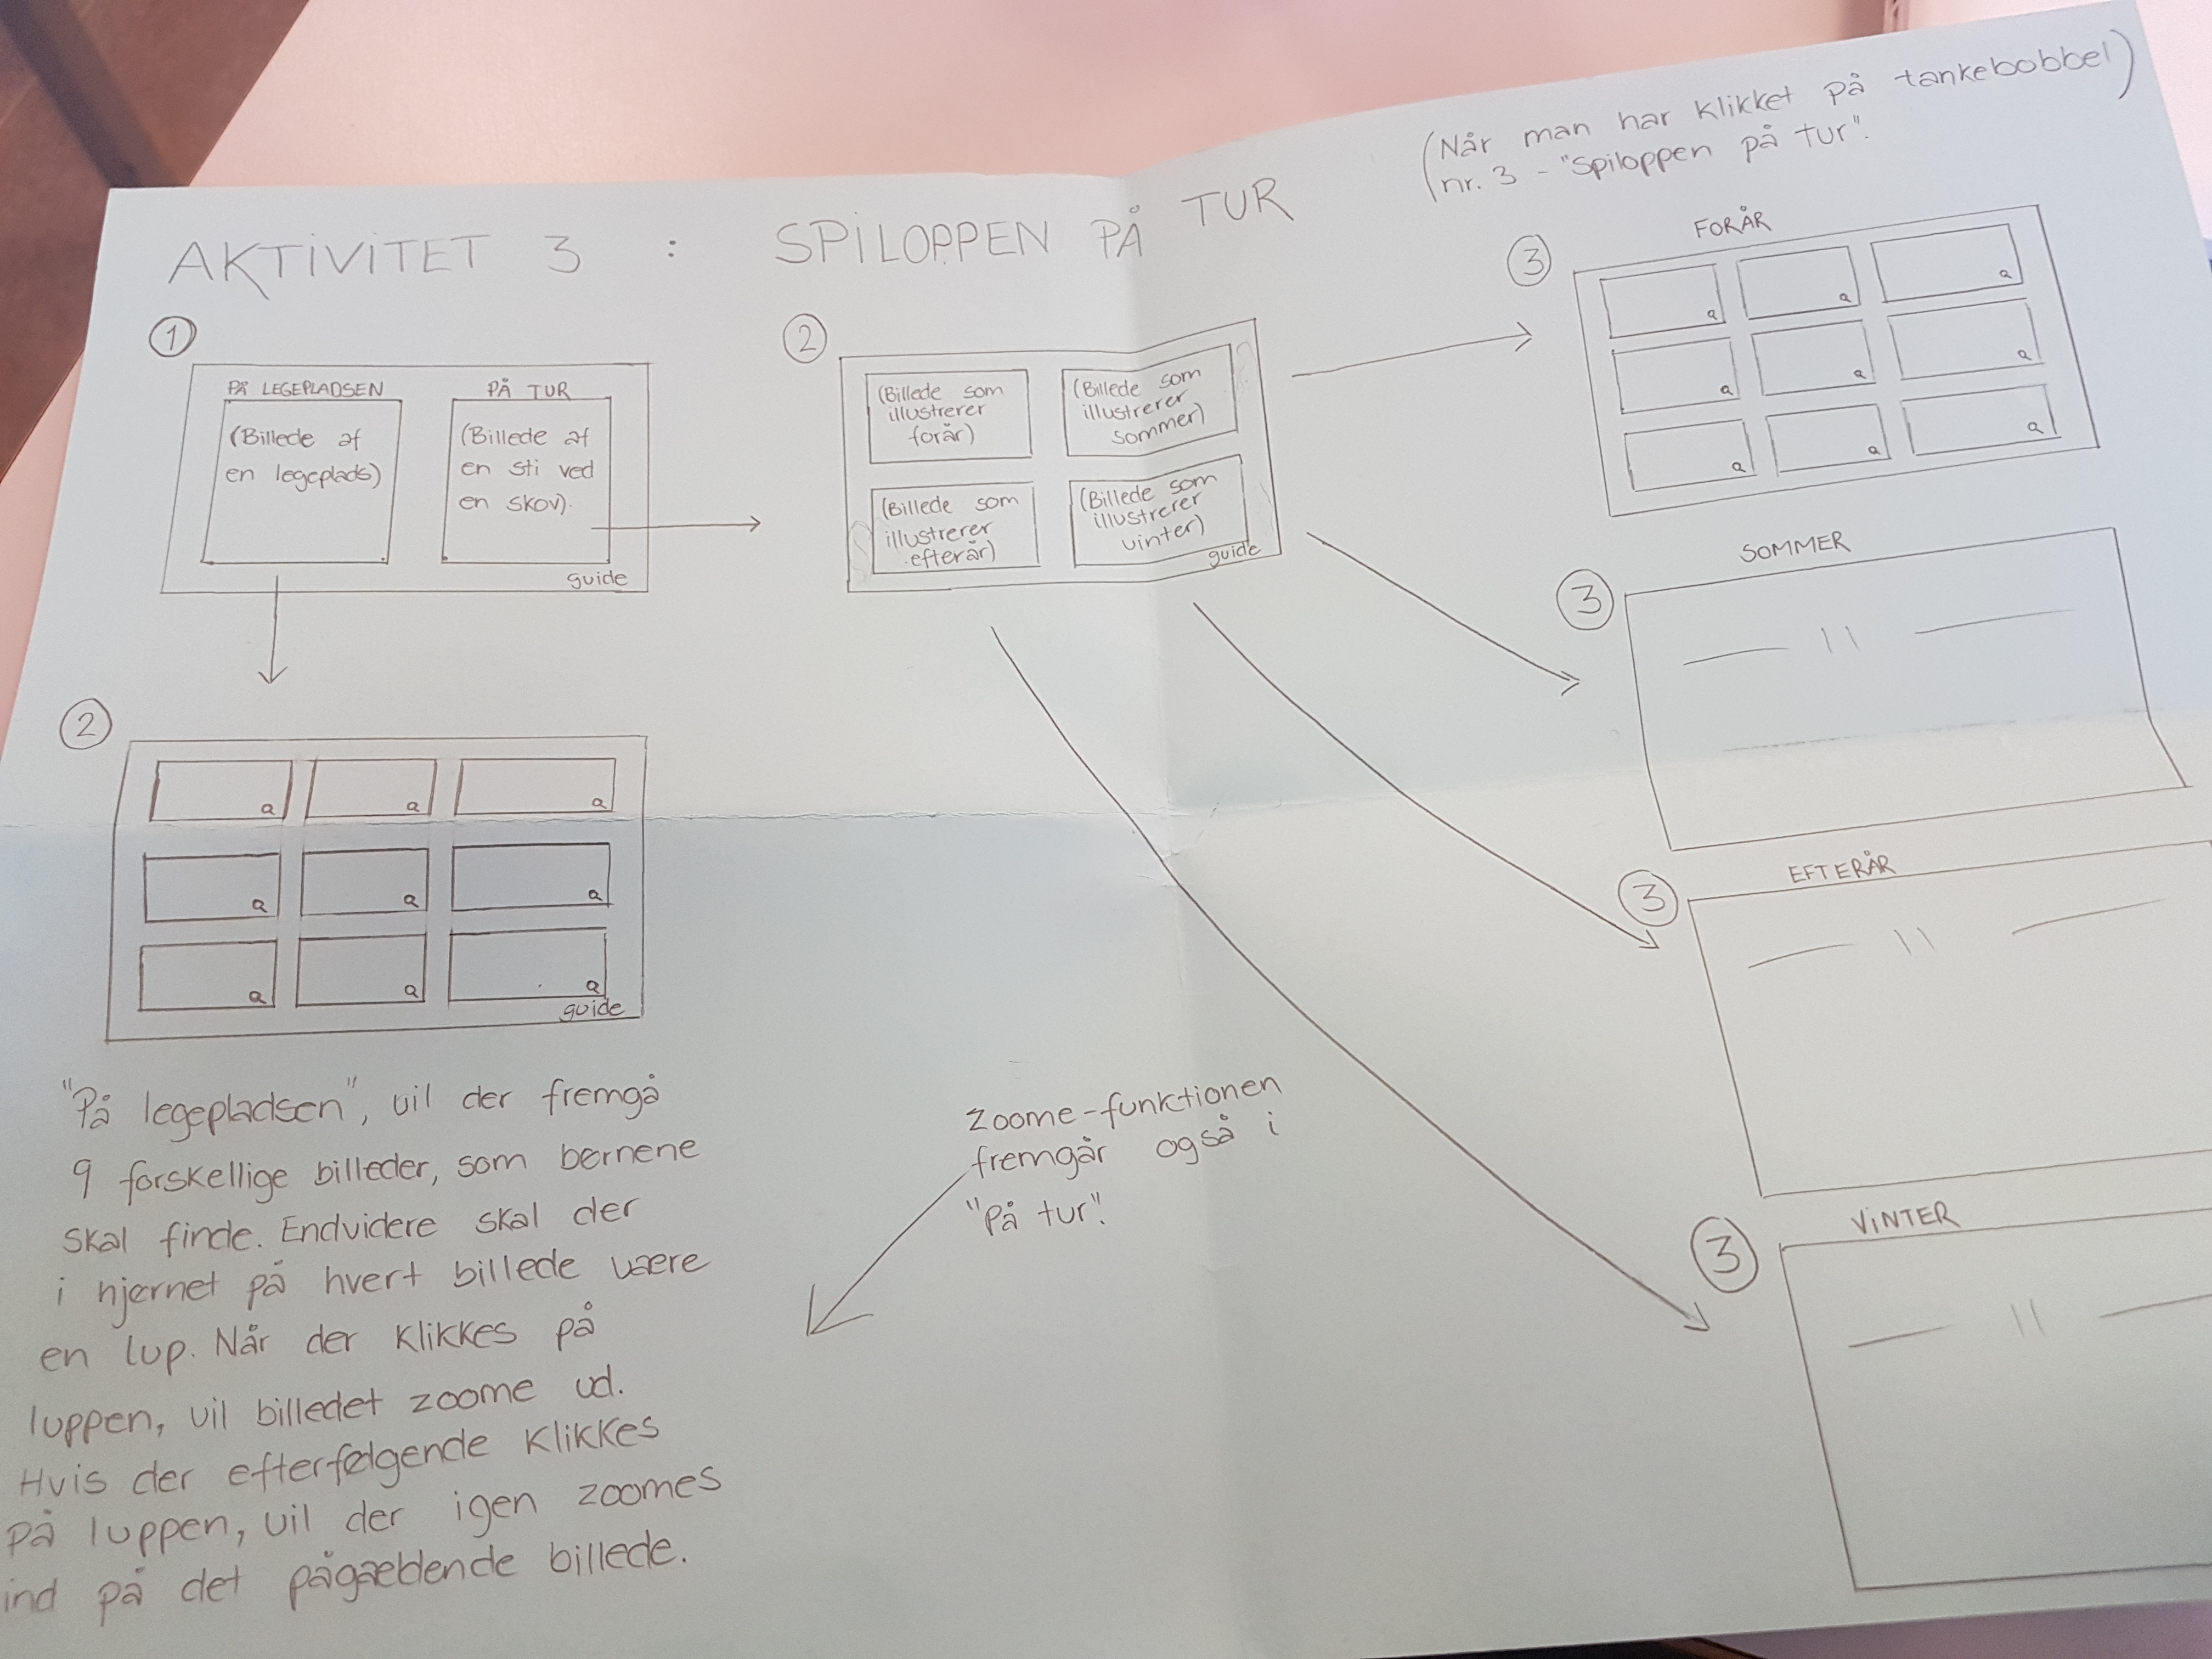 (Når man har klikket på tankebobbel)
nr. 3 - "Spiloppen på tur".
AKTIVITET 3 : SPILOPPEN PÅ TUR
1
PÅ LEGEPLADSEN
(Billede af
en legeplads)
PÅ TUR
(Billede af
en sti ved
en skov).
guide
2
(Billede som
illustrerer
forår)
(Billede som
illustrerer
sommer)
(Billede som
illustrerer
efterår)
(Billede som
illustrerer
vinter)
guide
3
FORÅR
3
SOMMER
3
EFTERÅR
3
VINTER
2
guide
"På legepladsen", vil der fremgå
9 forskellige billeder, som børnene
skal finde. Endvidere skal der
i hjørnet på hvert billede være
en lup. Når der klikkes på
luppen, vil billedet zoome ud.
Hvis der efterfølgende klikkes
på luppen, vil der igen zoomes
ind på det pågældende billede.
Zoome-funktionen
fremgår også i
"På tur".